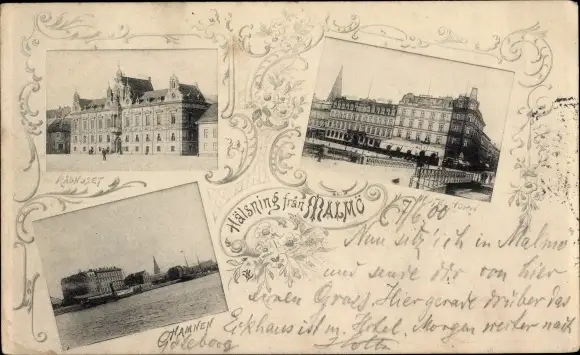 RÅDHUSET
TORG
Hälsning från MALMÖ
HAMNEN
7/6.00
Nun sitz' ich in Malmö
und sende dir von hier
einen Gruss. Hier gerade drüber das
Eckhaus ist m. Hotel. Morgen weiter nach
Göteborg